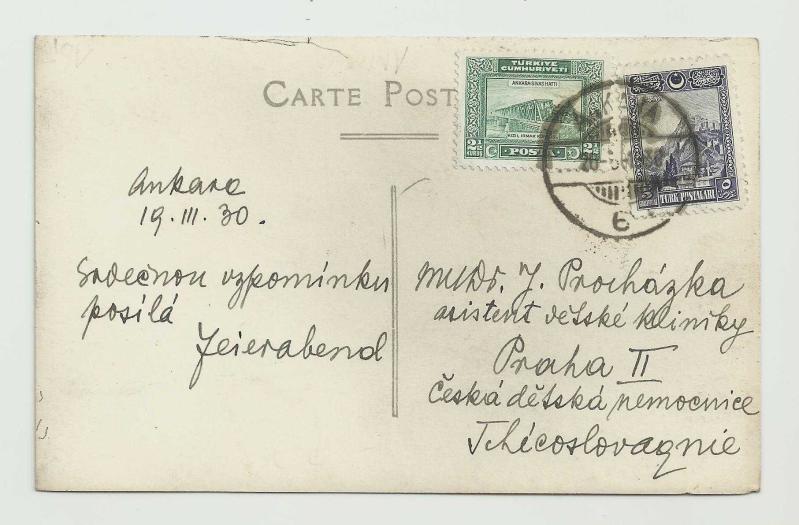 CARTE POST
TÜRKİYE
CUMHURİYETİ
ANKARA SIVAS HATTI
KIZIL IRMAK
2½ POSTA 2½
ANKARA
6
TÜRK POSTALARI
Ankara
19. III. 30.
Srdečnou vzpomínku
posílá
Feierabend
MUDr. J. Procházka
asistent dětské kliniky
Praha II
Česká dětská nemocnice
Tchécoslovaqnie